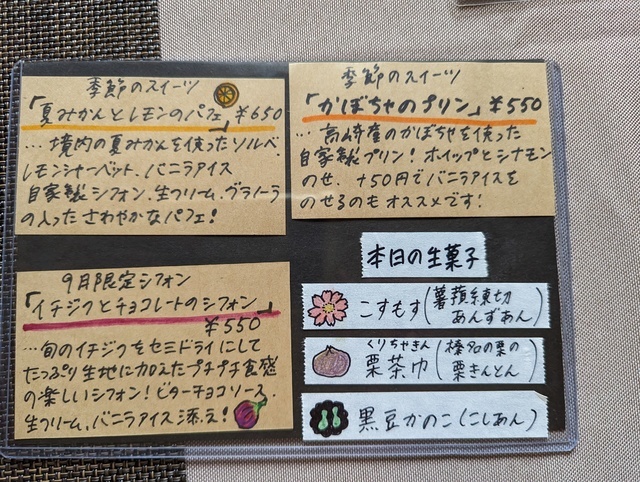 季節のスイーツ
「夏みかんとレモンのパフェ」¥650
…境内の夏みかんを使ったソルベ、
レモンシャーベット、バニラアイス
自家製シフォン、生クリーム、グラノーラ
の入ったさわやかなパフェ!
季節のスイーツ
「かぼちゃのプリン」¥550
…高崎産のかぼちゃを使った
自家製プリン!ホイップとシナモン
のせ、+50円でバニラアイスを
のせるのもオススメです!
9月限定シフォン
「イチジクとチョコレートのシフォン」
¥550
…旬のイチジクをセミドライにして
たっぷり生地に加えたプチプチ食感
の楽しいシフォン!ビターチョコソース、
生クリーム、バニラアイス添え!
本日の生菓子
こすもす(薯蕷練切
あんずあん)
くりちゃきん
栗茶巾(榛名の栗の
栗きんとん)
黒豆かのこ(こしあん)